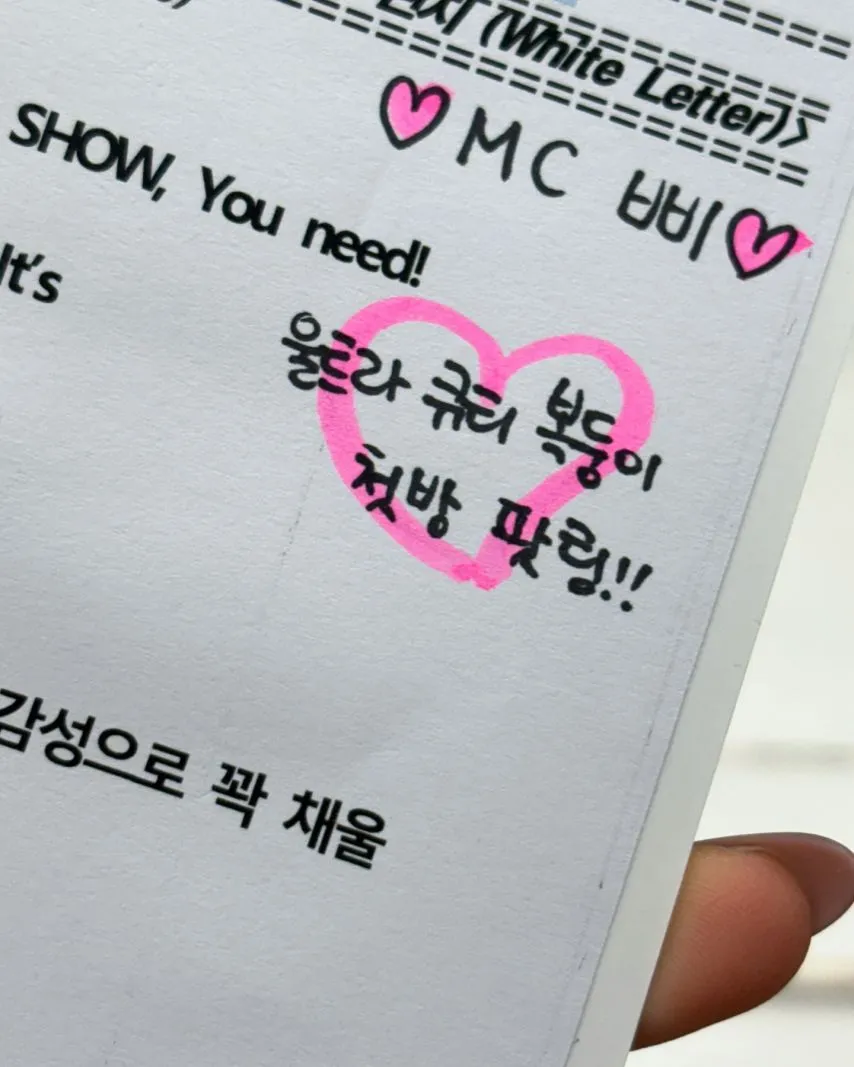 (White Letter)>
MC 삐삐
SHOW, You need!
It's
울트라 큐티 복둥이
첫방 팟팅!!
감성으로 꽉 채울